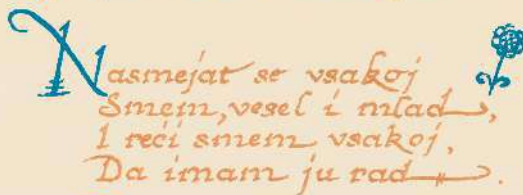 Nasmejat se vsakoj
Smem, vesel i mlad,
I reći smem vsakoj,
Da imam ju rad.